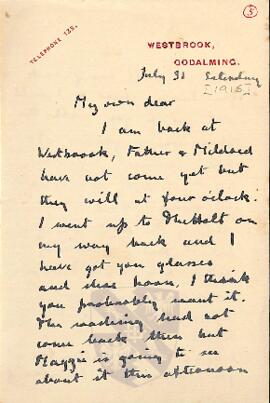 5
TELEPHONE 125.
WESTBROOK,
GODALMING.
July 31 Saturday
[1915]
My own dear
I am back at
Westbrook, Father & Mildred
have not come yet but
they will at four o'clock.
I went up to The Holt on
my way back and I
have got you glasses
and shoe horn, I think
you probably want it.
The washing had not
come back then but
Maggie is going to see
about it this afternoon